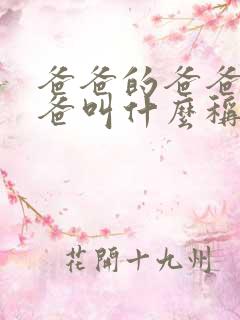 爸爸的爸爸
爸叫什麼稱
花開十九州